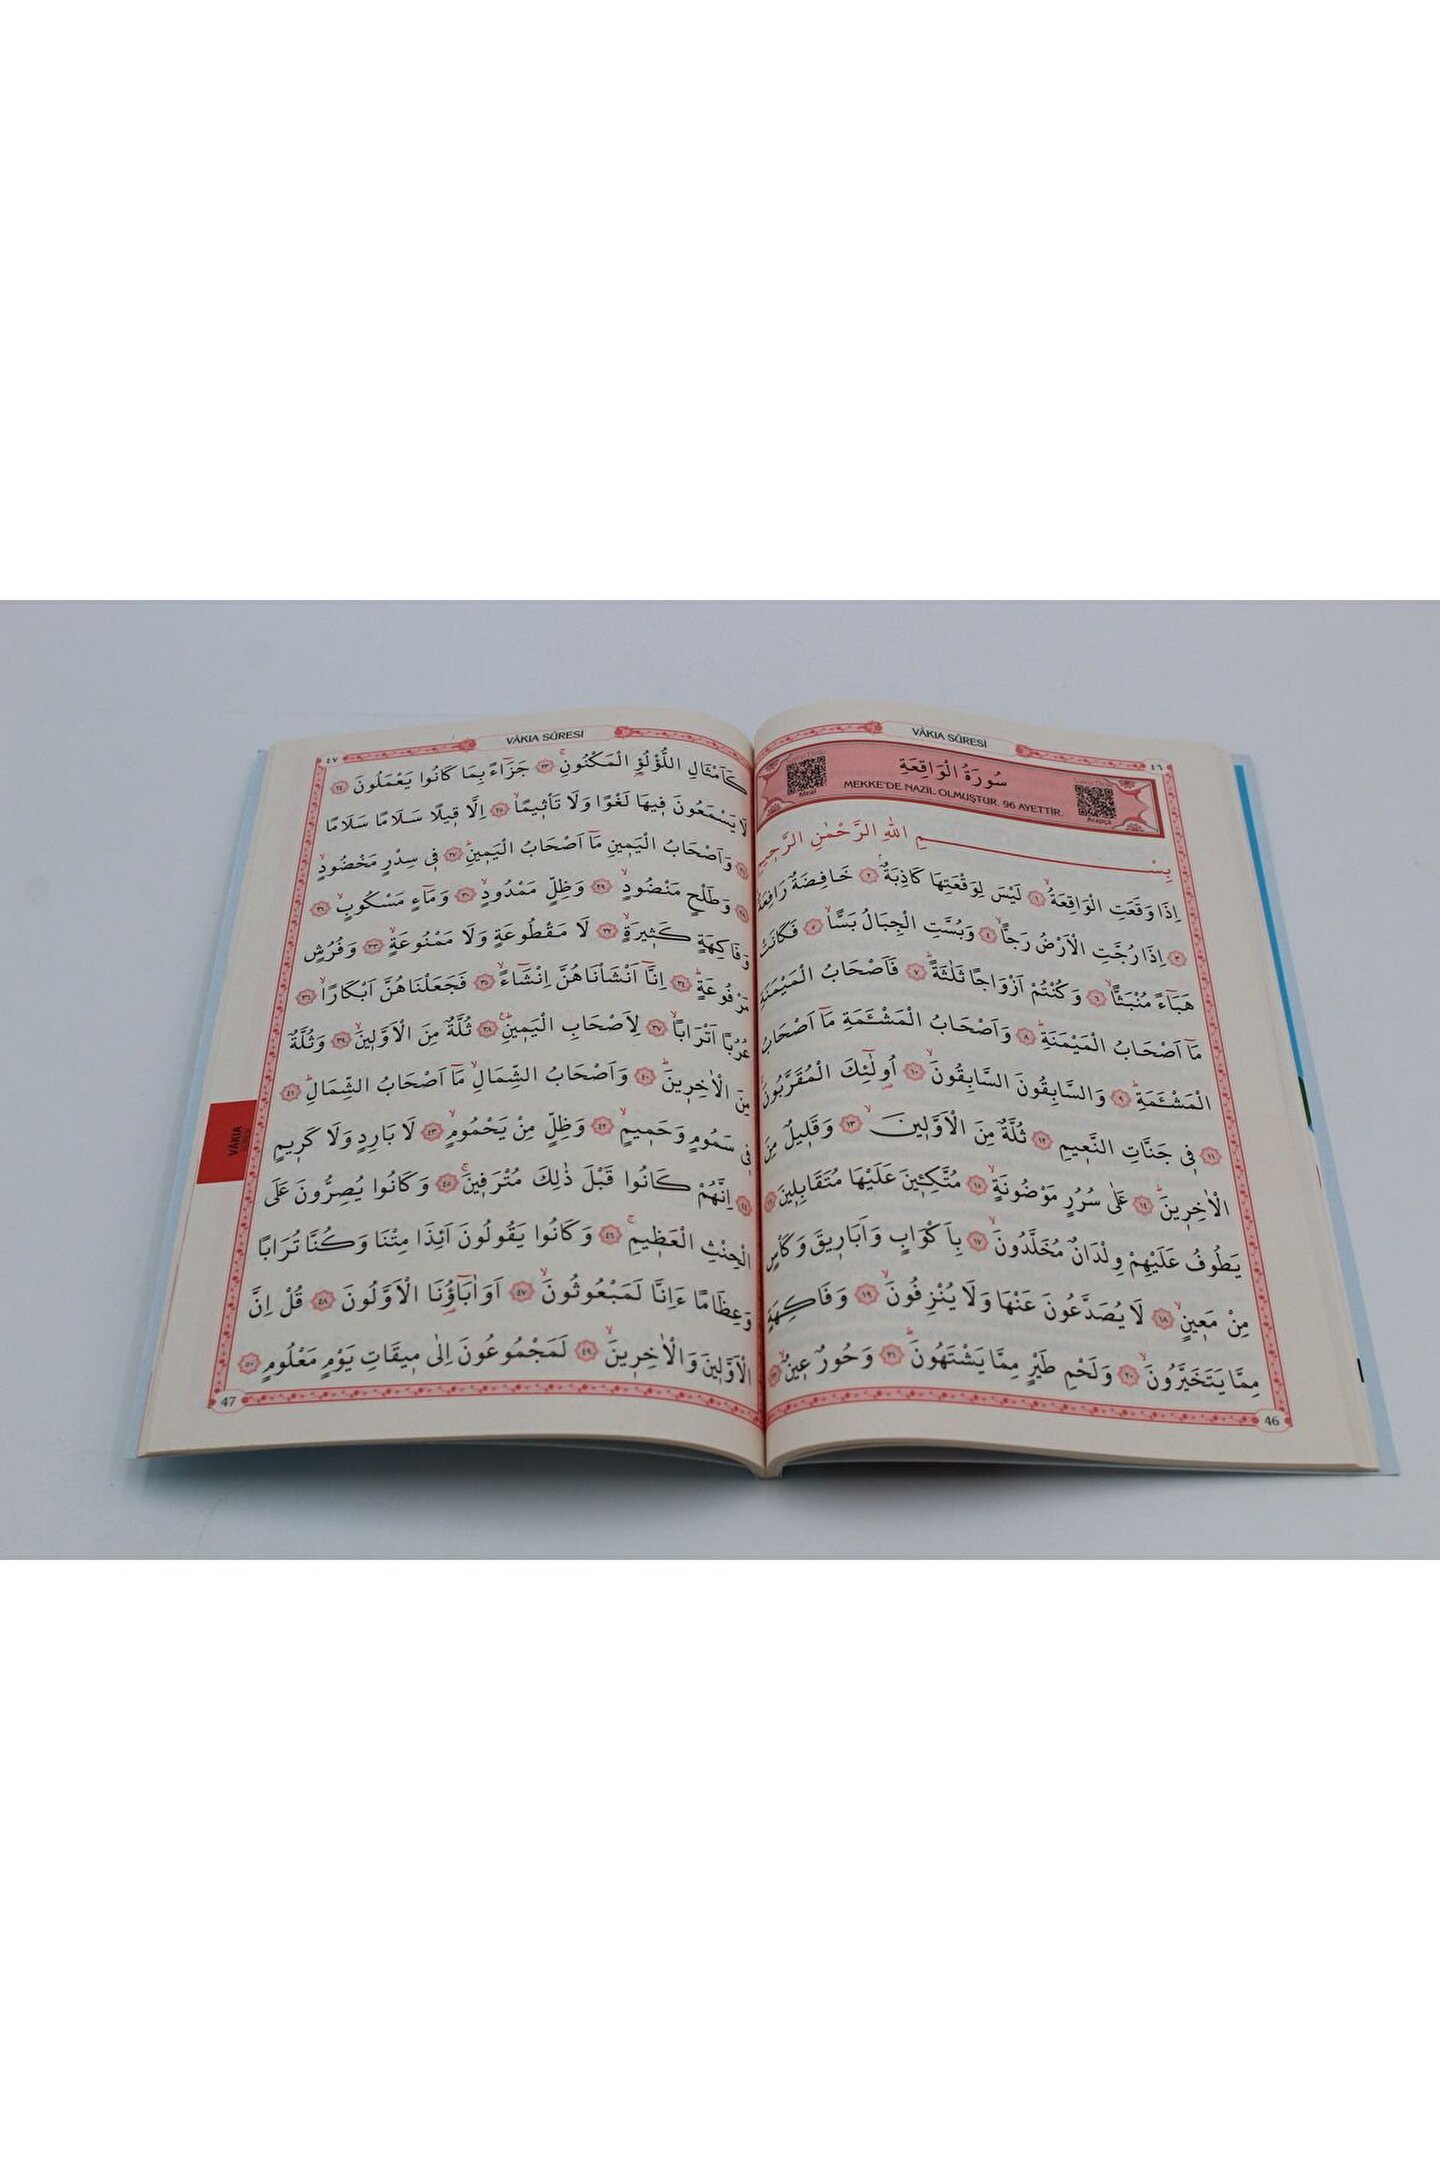 VÂKIA SÛRESİ
٤٦
سُورَةُ الْوَاقِعَةِ
MEKKE'DE NAZİL OLMUŞTUR. 96 AYETTİR.
Meal
Arapça
بِسْمِ اللهِ الرَّحْمٰنِ الرَّحِيمِ
اِذَا وَقَعَتِ الْوَاقِعَةُۙ ﴿١﴾ لَيْسَ لِوَقْعَتِهَا كَاذِبَةٌۢ ﴿٢﴾ خَافِضَةٌ رَافِعَةٌ
﴿٣﴾ اِذَا رُجَّتِ الْاَرْضُ رَجًّاۙ ﴿٤﴾ وَبُسَّتِ الْجِبَالُ بَسًّاۙ ﴿٥﴾ فَكَانَتْ
هَبَٓاءً مُنْبَثًّاۙ ﴿٦﴾ وَكُنْتُمْ اَزْوَاجًا ثَلٰثَةًۜ ﴿٧﴾ فَاَصْحَابُ الْمَيْمَنَةِ
مَٓا اَصْحَابُ الْمَيْمَنَةِۜ ﴿٨﴾ وَاَصْحَابُ الْمَشْـَٔمَةِ مَٓا اَصْحَابُ
الْمَشْـَٔمَةِۜ ﴿٩﴾ وَالسَّابِقُونَ السَّابِقُونَۙ ﴿١٠﴾ اُو۬لٰٓئِكَ الْمُقَرَّبُونَ
﴿١١﴾ فِي جَنَّاتِ النَّعِيمِ ﴿١٢﴾ ثُلَّةٌ مِنَ الْاَوَّلِينَۙ ﴿١٣﴾ وَقَلِيلٌ مِنَ
الْاٰخِرِينَۜ ﴿١٤﴾ عَلٰى سُرُرٍ مَوْضُونَةٍۙ ﴿١٥﴾ مُتَّكِـِٔينَ عَلَيْهَا مُتَقَابِلِينَ ﴿١٦﴾
يَطُوفُ عَلَيْهِمْ وِلْدَانٌ مُخَلَّدُونَۙ ﴿١٧﴾ بِاَكْوَابٍ وَاَبَارِيقَ وَكَأْسٍ
مِنْ مَعِينٍۙ ﴿١٨﴾ لَا يُصَدَّعُونَ عَنْهَا وَلَا يُنْزِفُونَۙ ﴿١٩﴾ وَفَاكِهَةٍ
مِمَّا يَتَخَيَّرُونَۙ ﴿٢٠﴾ وَلَحْمِ طَيْرٍ مِمَّا يَشْتَهُونَۜ ﴿٢١﴾ وَحُورٌ عِينٌۙ ﴿٢٢﴾
46
VÂKIA SÛRESİ
٤٧
كَاَمْثَالِ اللُّؤْلُؤِ الْمَكْنُونِۚ ﴿٢٣﴾ جَزَٓاءً بِمَا كَانُوا يَعْمَلُونَ ﴿٢٤﴾
لَا يَسْمَعُونَ فِيهَا لَغْوًا وَلَا تَأْثِيمًاۙ ﴿٢٥﴾ اِلَّا قِيلًا سَلَامًا سَلَامًا
﴿٢٦﴾ وَاَصْحَابُ الْيَمِينِ مَٓا اَصْحَابُ الْيَمِينِۜ ﴿٢٧﴾ فِي سِدْرٍ مَخْضُودٍۙ
﴿٢٨﴾ وَطَلْحٍ مَنْضُودٍۙ ﴿٢٩﴾ وَظِلٍّ مَمْدُودٍۙ ﴿٣٠﴾ وَمَٓاءٍ مَسْكُوبٍۙ ﴿٣١﴾
وَفَاكِهَةٍ كَثِيرَةٍۙ ﴿٣٢﴾ لَا مَقْطُوعَةٍ وَلَا مَمْنُوعَةٍۙ ﴿٣٣﴾ وَفُرُشٍ
مَرْفُوعَةٍۜ ﴿٣٤﴾ اِنَّٓا اَنْشَأْنَاهُنَّ اِنْشَٓاءًۙ ﴿٣٥﴾ فَجَعَلْنَاهُنَّ اَبْكَارًاۙ ﴿٣٦﴾
عُرُبًا اَتْرَابًاۙ ﴿٣٧﴾ لِاَصْحَابِ الْيَمِينِۜ ﴿٣٨﴾ ثُلَّةٌ مِنَ الْاَوَّلِينَۙ ﴿٣٩﴾ وَثُلَّةٌ
مِنَ الْاٰخِرِينَۜ ﴿٤٠﴾ وَاَصْحَابُ الشِّمَالِۙ مَٓا اَصْحَابُ الشِّمَالِۜ ﴿٤١﴾
فِي سَمُومٍ وَحَمِيمٍۙ ﴿٤٢﴾ وَظِلٍّ مِنْ يَحْمُومٍۙ ﴿٤٣﴾ لَا بَارِدٍ وَلَا كَرِيمٍ
﴿٤٤﴾ اِنَّهُمْ كَانُوا قَبْلَ ذٰلِكَ مُتْرَفِينَۚ ﴿٤٥﴾ وَكَانُوا يُصِرُّونَ عَلَى
الْحِنْثِ الْعَظِيمِۚ ﴿٤٦﴾ وَكَانُوا يَقُولُونَ اَئِذَا مِتْنَا وَكُنَّا تُرَابًا
وَعِظَامًا ءَاِنَّا لَمَبْعُوثُونَۙ ﴿٤٧﴾ اَوَاٰبَٓاؤُ۬نَا الْاَوَّلُونَ ﴿٤٨﴾ قُلْ اِنَّ
الْاَوَّلِينَ وَالْاٰخِرِينَۙ ﴿٤٩﴾ لَمَجْمُوعُونَ اِلٰى مِيقَاتِ يَوْمٍ مَعْلُومٍ ﴿٥٠﴾
47
VÂKIA